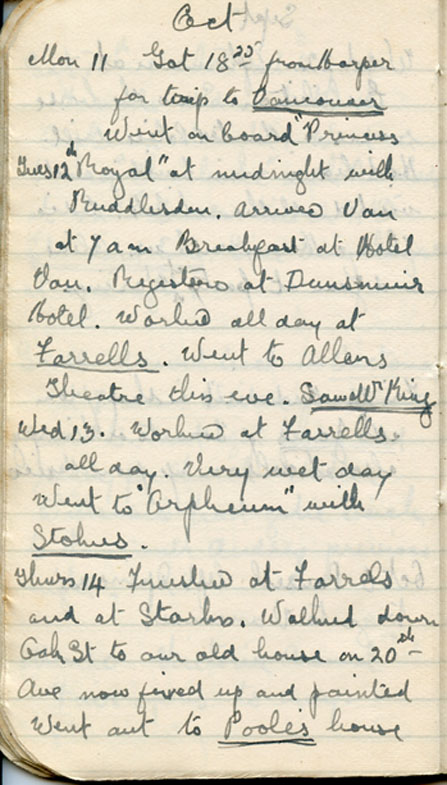 Oct
Mon 11 Got 18²⁵ from Harper
for trip to Vancouver
Went on board "Princess
Tues 12th Royal" at midnight with
Ruddlesden. Arrived Van
at 7 am Breakfast at Hotel
Van. Registered at Dunsmuir
Hotel. Worked all day at
Farrells. Went to Allens
Theatre this eve. Saw Mr King
Wed 13. Worked at Farrells
all day. Very wet day
Went to "Orpheum" with
Stokes.
Thurs 14 Finished at Farrels
and at Starks. Walked down
Oak St to our old house on 20th
Ave now fixed up and painted
Went out to Poole's house